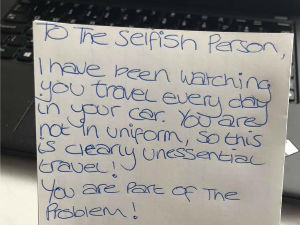 To The Selfish Person,
I have been watching
you travel every day
in your car. You are
not in uniform, so this
is clearly unessential
travel!
You are Part of The
Problem!